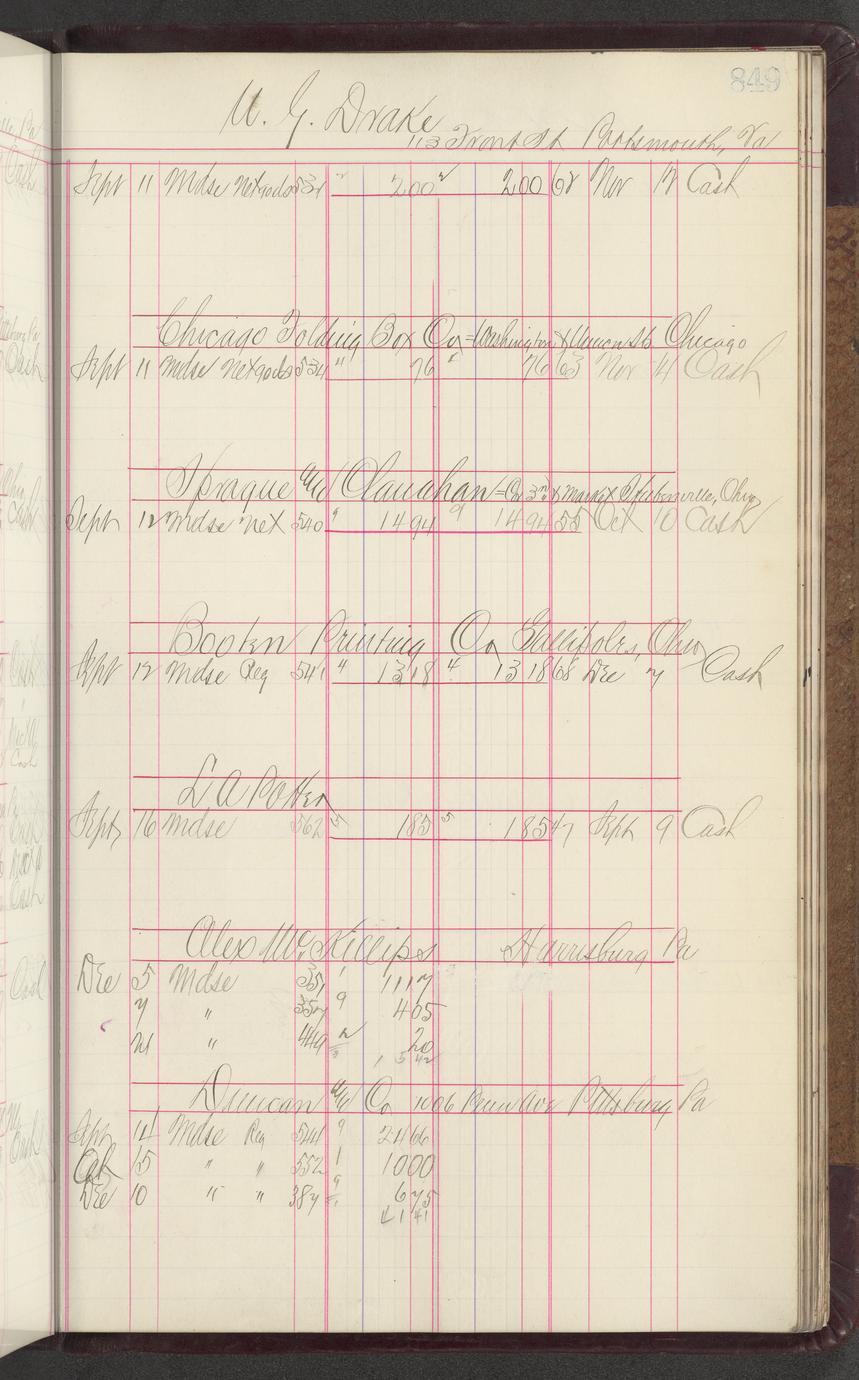 849
W. G. Drake
113 Front St Portsmouth, Va
Sept 11 Mdse Net gods 534 2 200 2 200 68 Nov 12 Cash
Chicago Folding Box Co = Washington & Union Sts Chicago
Sept 11 Mdse Net gods 534 " 76 " 76 63 Nov 14 Cash
Sprague and Clanahan = Cor 3rd & Market Steubenville, Ohio
Sept 12 Mdse Net 540 9 1494 9 1494 55 Oct 10 Cash
Booten Printing Co Gallipolis, Ohio
Sept 12 Mdse Reg 541 4 1318 4 1318 68 Dec 7 Cash
L A Potter
Sept 16 Mdse 562 5 185 5 185 47 Sept 9 Cash
Alex Mc Killips Harrisburg Pa
Dec 5 Mdse 351 1 1117
7 " 357 9 405
21 " 449 2 20
1542
Duncan and Co 1006 Penn Ave Pittsburg Pa
Sept 14 Mdse Reg 544 9 2466
Oct 15 " " 552 1 1000
Dec 10 " " 387 9 675
4141